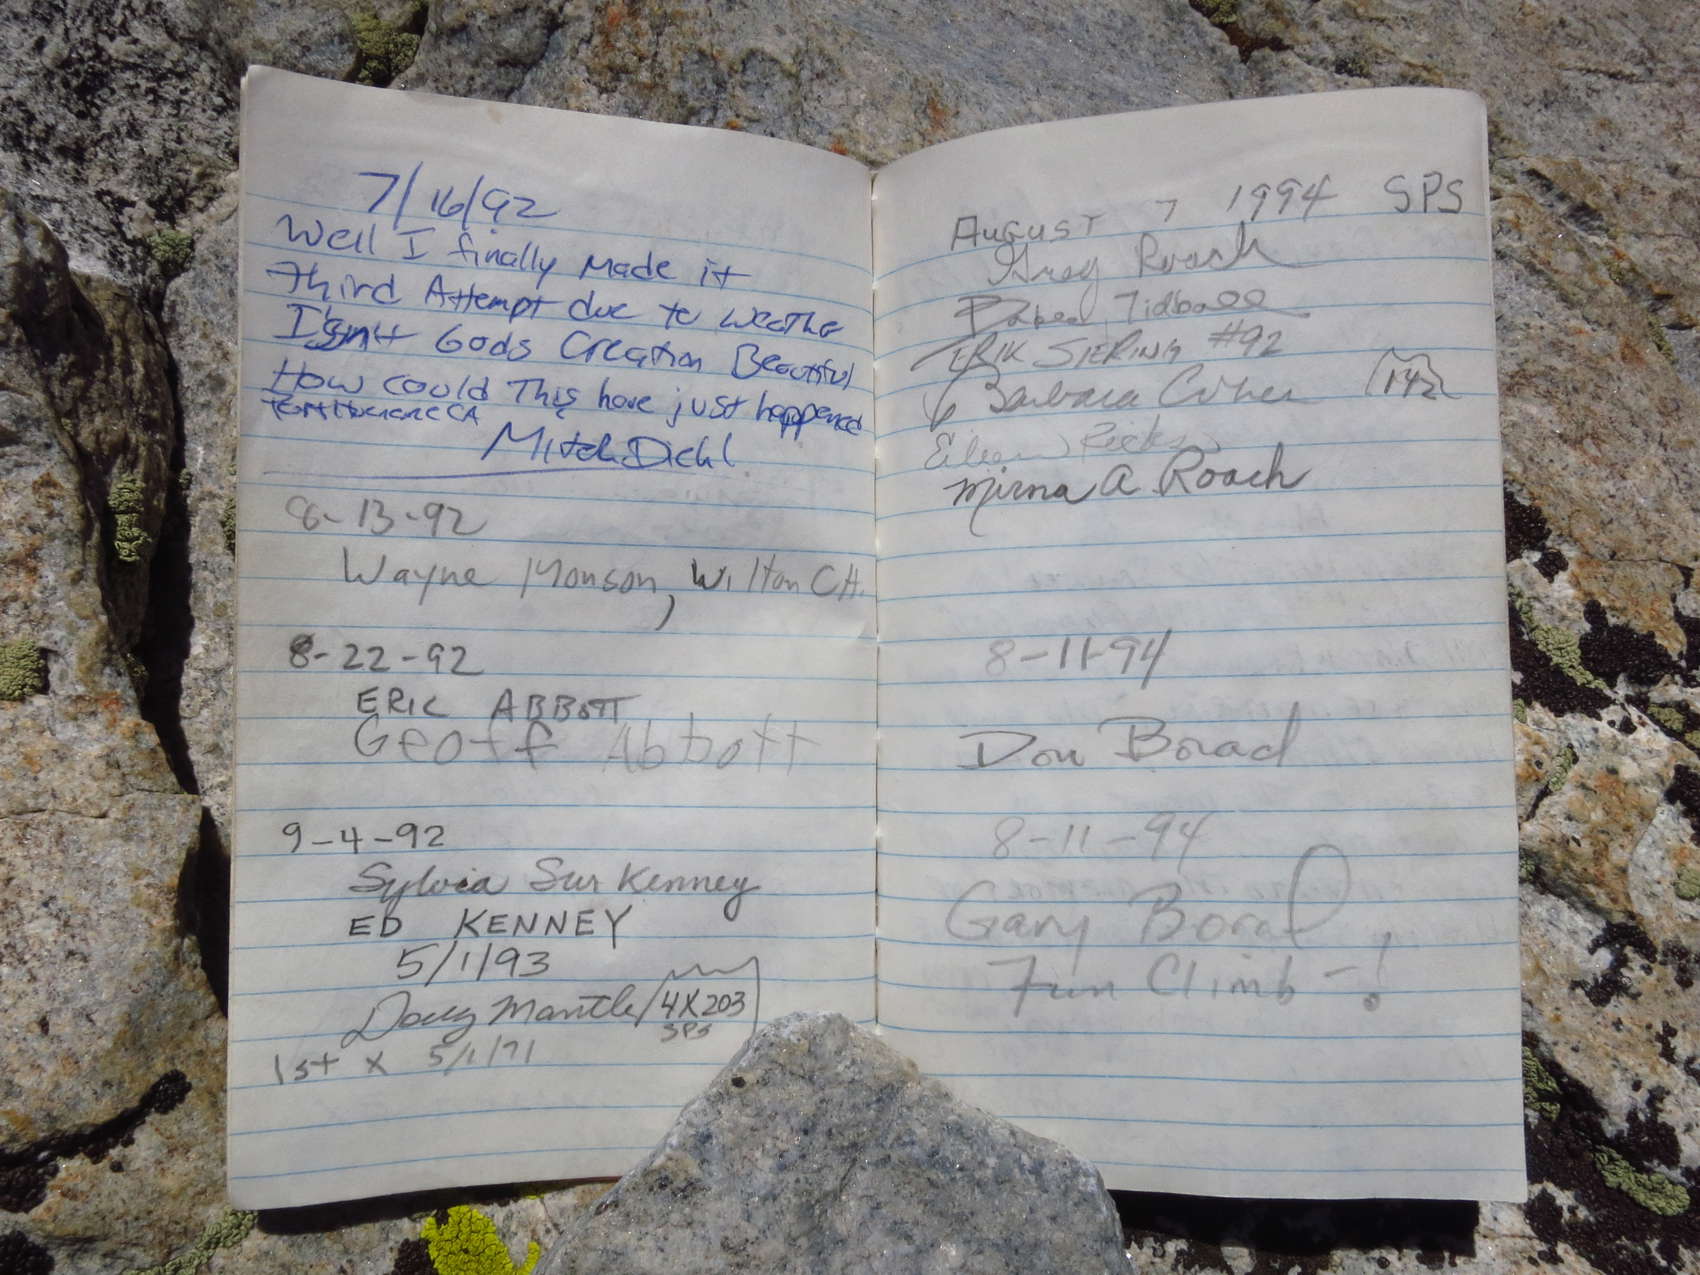 7/16/92
Well I finally Made it
Third Attempt due to weathe
Isn't Gods Creation Beautiful
How could This have just happened
CA
Mitch Diehl
8-13-92
Wayne Monson, Wilton CA.
8-22-92
ERIC ABBOTT
Geoff Abbott
9-4-92
Sylvia Sur Kenney
ED KENNEY
5/1/93
Doug Mantle 4X203
SPS
1st x 5/1/71
August 7 1994 SPS
Greg Roach
Tidball
ERIK SIERING #92
Barbara Cohen 142
Eileen Ricks
Mirna A Roach
8-11-94
Don Borad
8-11-94
Gary Borad
Fun Climb - !